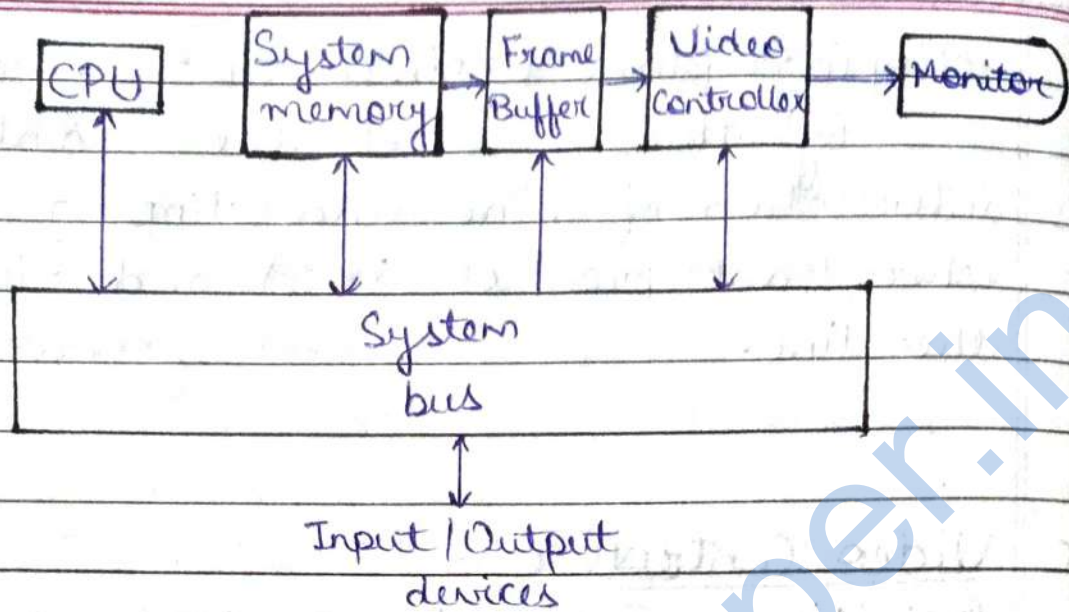 CPU
System
memory
Frame
Buffer
Video
Controller
Monitor
System
bus
Input/Output
devices
per.in